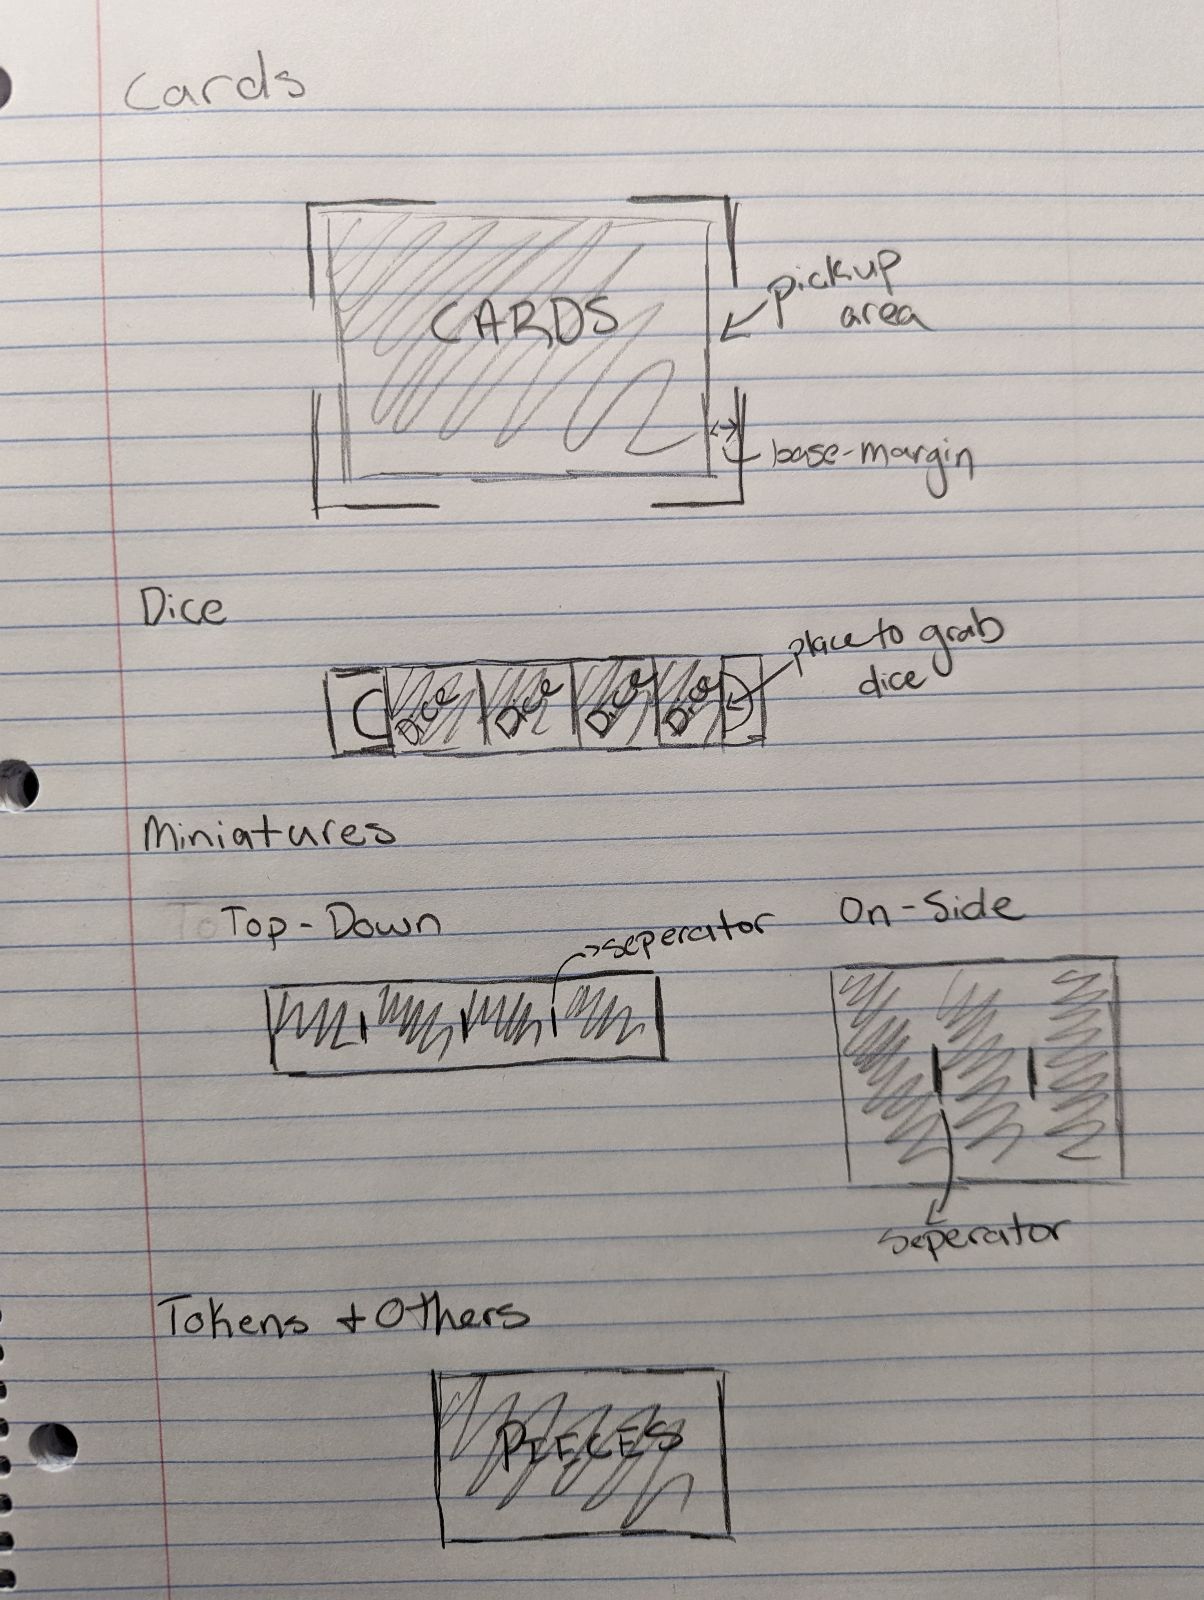 Cards
CARDS
pickup
area
base-margin
Dice
place to grab
dice
Dice Dice Dice Dice
Miniatures
To Top-Down
seperator
On-Side
seperator
Tokens + Others
PIECES